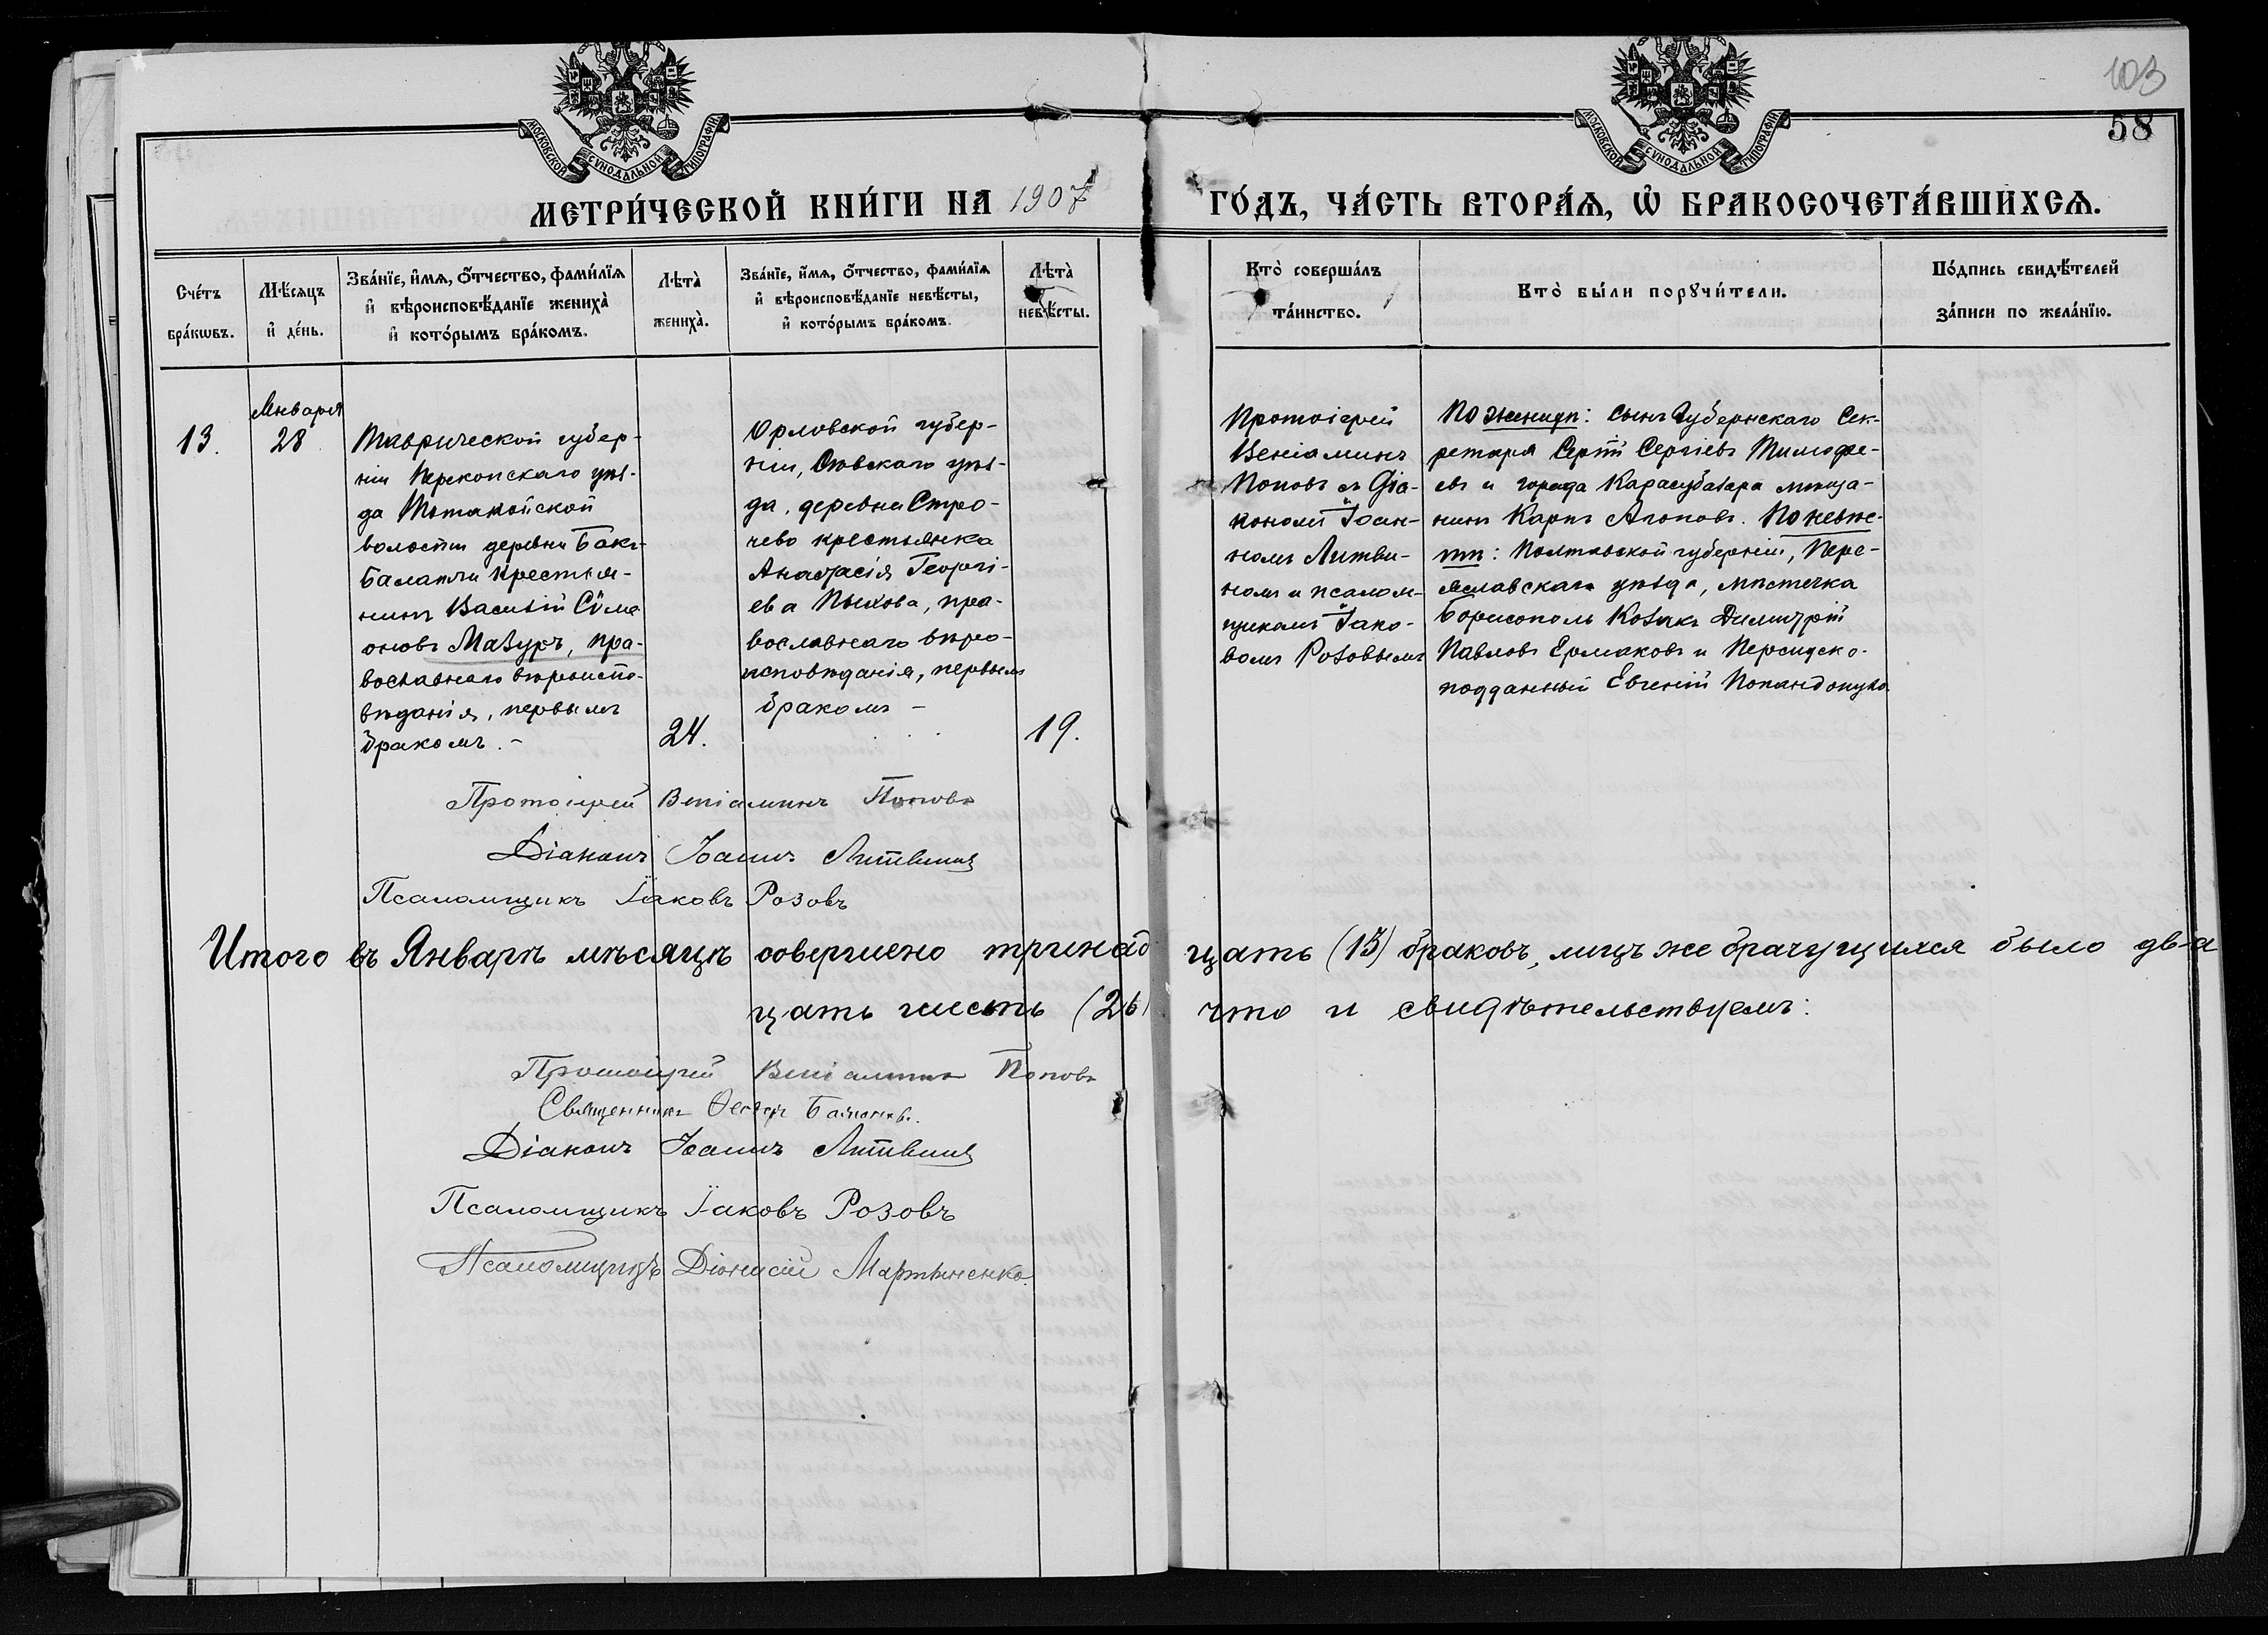 103
58
МОСКОВСКОЙ СѴНОДАЛЬНОЙ ТИПОГРАФІИ
МОСКОВСКОЙ СѴНОДАЛЬНОЙ ТИПОГРАФІИ
МЕТРИ́ЧЕСКОЙ КНИ́ГИ НА 1907 ГО́ДЪ, ЧА́СТЬ ВТОРА́Я, Ѡ БРАКОСОЧЕТА́ВШИХСЯ.
Счéтъ
брáкωвъ.
Мѣ́сяцъ
и҆ дéнь.
Звáнїе, и҆́мя, ѻ҆́тчество, фами́лїя
и҆ вѣроисповѣ́данїе женихà
и҆ котóрымъ брáкомъ.
Лѣтà
женихà.
Звáнїе, и҆́мя, ѻ҆́тчество, фами́лїя
и҆ вѣроисповѣ́данїе невѣ́сты,
и҆ котóрымъ брáкомъ.
Лѣтà
невѣ́сты.
Ктò совершáлъ
тáинство.
Ктò бы́ли порꙋчи́тели.
Пóдпись свидѣ́телей
зáписи по желáнїю.
13.
Января
28
Таврической губер-
ніи Перекопскаго уѣз-
да
волости деревни Бакъ-
крестья-
нинъ Василій Сѵме
оновъ Мазуръ, пра-
вославнаго вѣроиспо-
вѣданія, первымъ
бракомъ. –
24.
Орловской губер-
ніи, Сѣвскаго уѣз-
да, деревни Стро-
чево крестьянка
Анастасія Георгі-
ева Пыхова, пра-
вославнаго вѣро-
исповѣданія, первымъ
бракомъ –
19.
Протоіерей
Веніаминъ
Поповъ съ Діа-
кономъ Іоан-
номъ Литви-
номъ и псалом-
щикомъ Іако-
вомъ Розовымъ
По женихѣ: сынъ Губернскаго Сек-
ретаря Сергѣй Сергіевъ Тимофе-
евъ и города Карасубазара мѣща-
нинъ Карпъ Агоповъ. По невѣс-
тѣ: Полтавской губерніи, Пере-
яславскаго уѣзда, мѣстечка
Борисополь Козакъ Димитрій
Павловъ Ермаковъ и Персидско-
подданный Евгеній Попандопуло
Протоіерей Веніаминъ Поповъ
Діаконъ Іоаннъ Литвинъ
Псаломщикъ Іаковъ Розовъ
Итого въ Январѣ мѣсяцѣ совершено тринад цать (13) браковъ, лицъ же брачущихся было два
цать шесть (26) что и свидѣтельствуемъ:
Протоіерей Веніаминъ Поповъ
Священникъ
Діаконъ Іоаннъ Литвинъ
Псаломщикъ Іаковъ Розовъ
Псаломщикъ Діонисій Мартыненко.